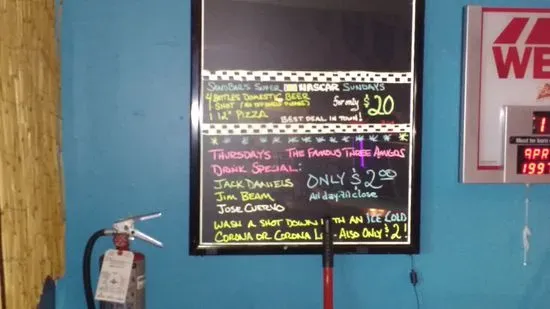 SandBar's Super NASCAR Sundays
4 Bottles Domestic Beer
1 Shot
1 12" Pizza
for only $20
Best Deal in Town!
Thursdays The Famous Three Amigos
Drink Special:
Jack Daniels
Jim Beam
Jose Cuervo
Only $2.00
All day til close
Wash a shot down with an Ice Cold
Corona or Corona Also Only $2!
WE
Must be born
1
APR
199